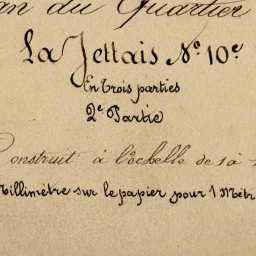 an du Quartier
La Jettais N° 10e
En Trois parties
2e Partie
Construit à l'échelle de 1 à
Millimètre sur le papier pour 1 Mètr